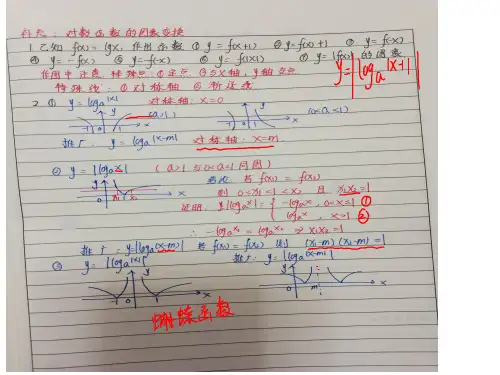 补充: 对数函数的图象变换
1. 已知 f(x) = lgx, 作出函数 ① y = f(x+1) ② y = f(x)+1 ③ y = f(-x)
④ y = -f(x) ⑤ y = -f(-x) ⑥ y = f(|x|) ⑦ y = |f(x)| 的图象
作图中注意 特殊点: ① 定点 ② 与x轴, y轴交点
特殊线: ① 对称轴 ② 渐近线
y = |loga|x+1||
2. ① y = loga|x| 对称轴: x=0
(a>1) (0<a<1)
推广: y = loga|x-m| 对称轴: x=m.
② y = |logax| (a>1 与 0<a<1 同图)
若 f(x1) = f(x2)
则 0<x1<1<x2 且 x1x2=1
证明: y=|logax| = { -logax, 0<x<1 ①
logax, x>1 ②
∴ -logax1 = logax2 ⇒ x1x2=1
推广: y=|loga(x-m)| 若 f(x1) = f(x2) 则 (x1-m)(x2-m)=1
③ y = |loga|x|| 推广: y = |loga|x-m||
蝴蝶函数